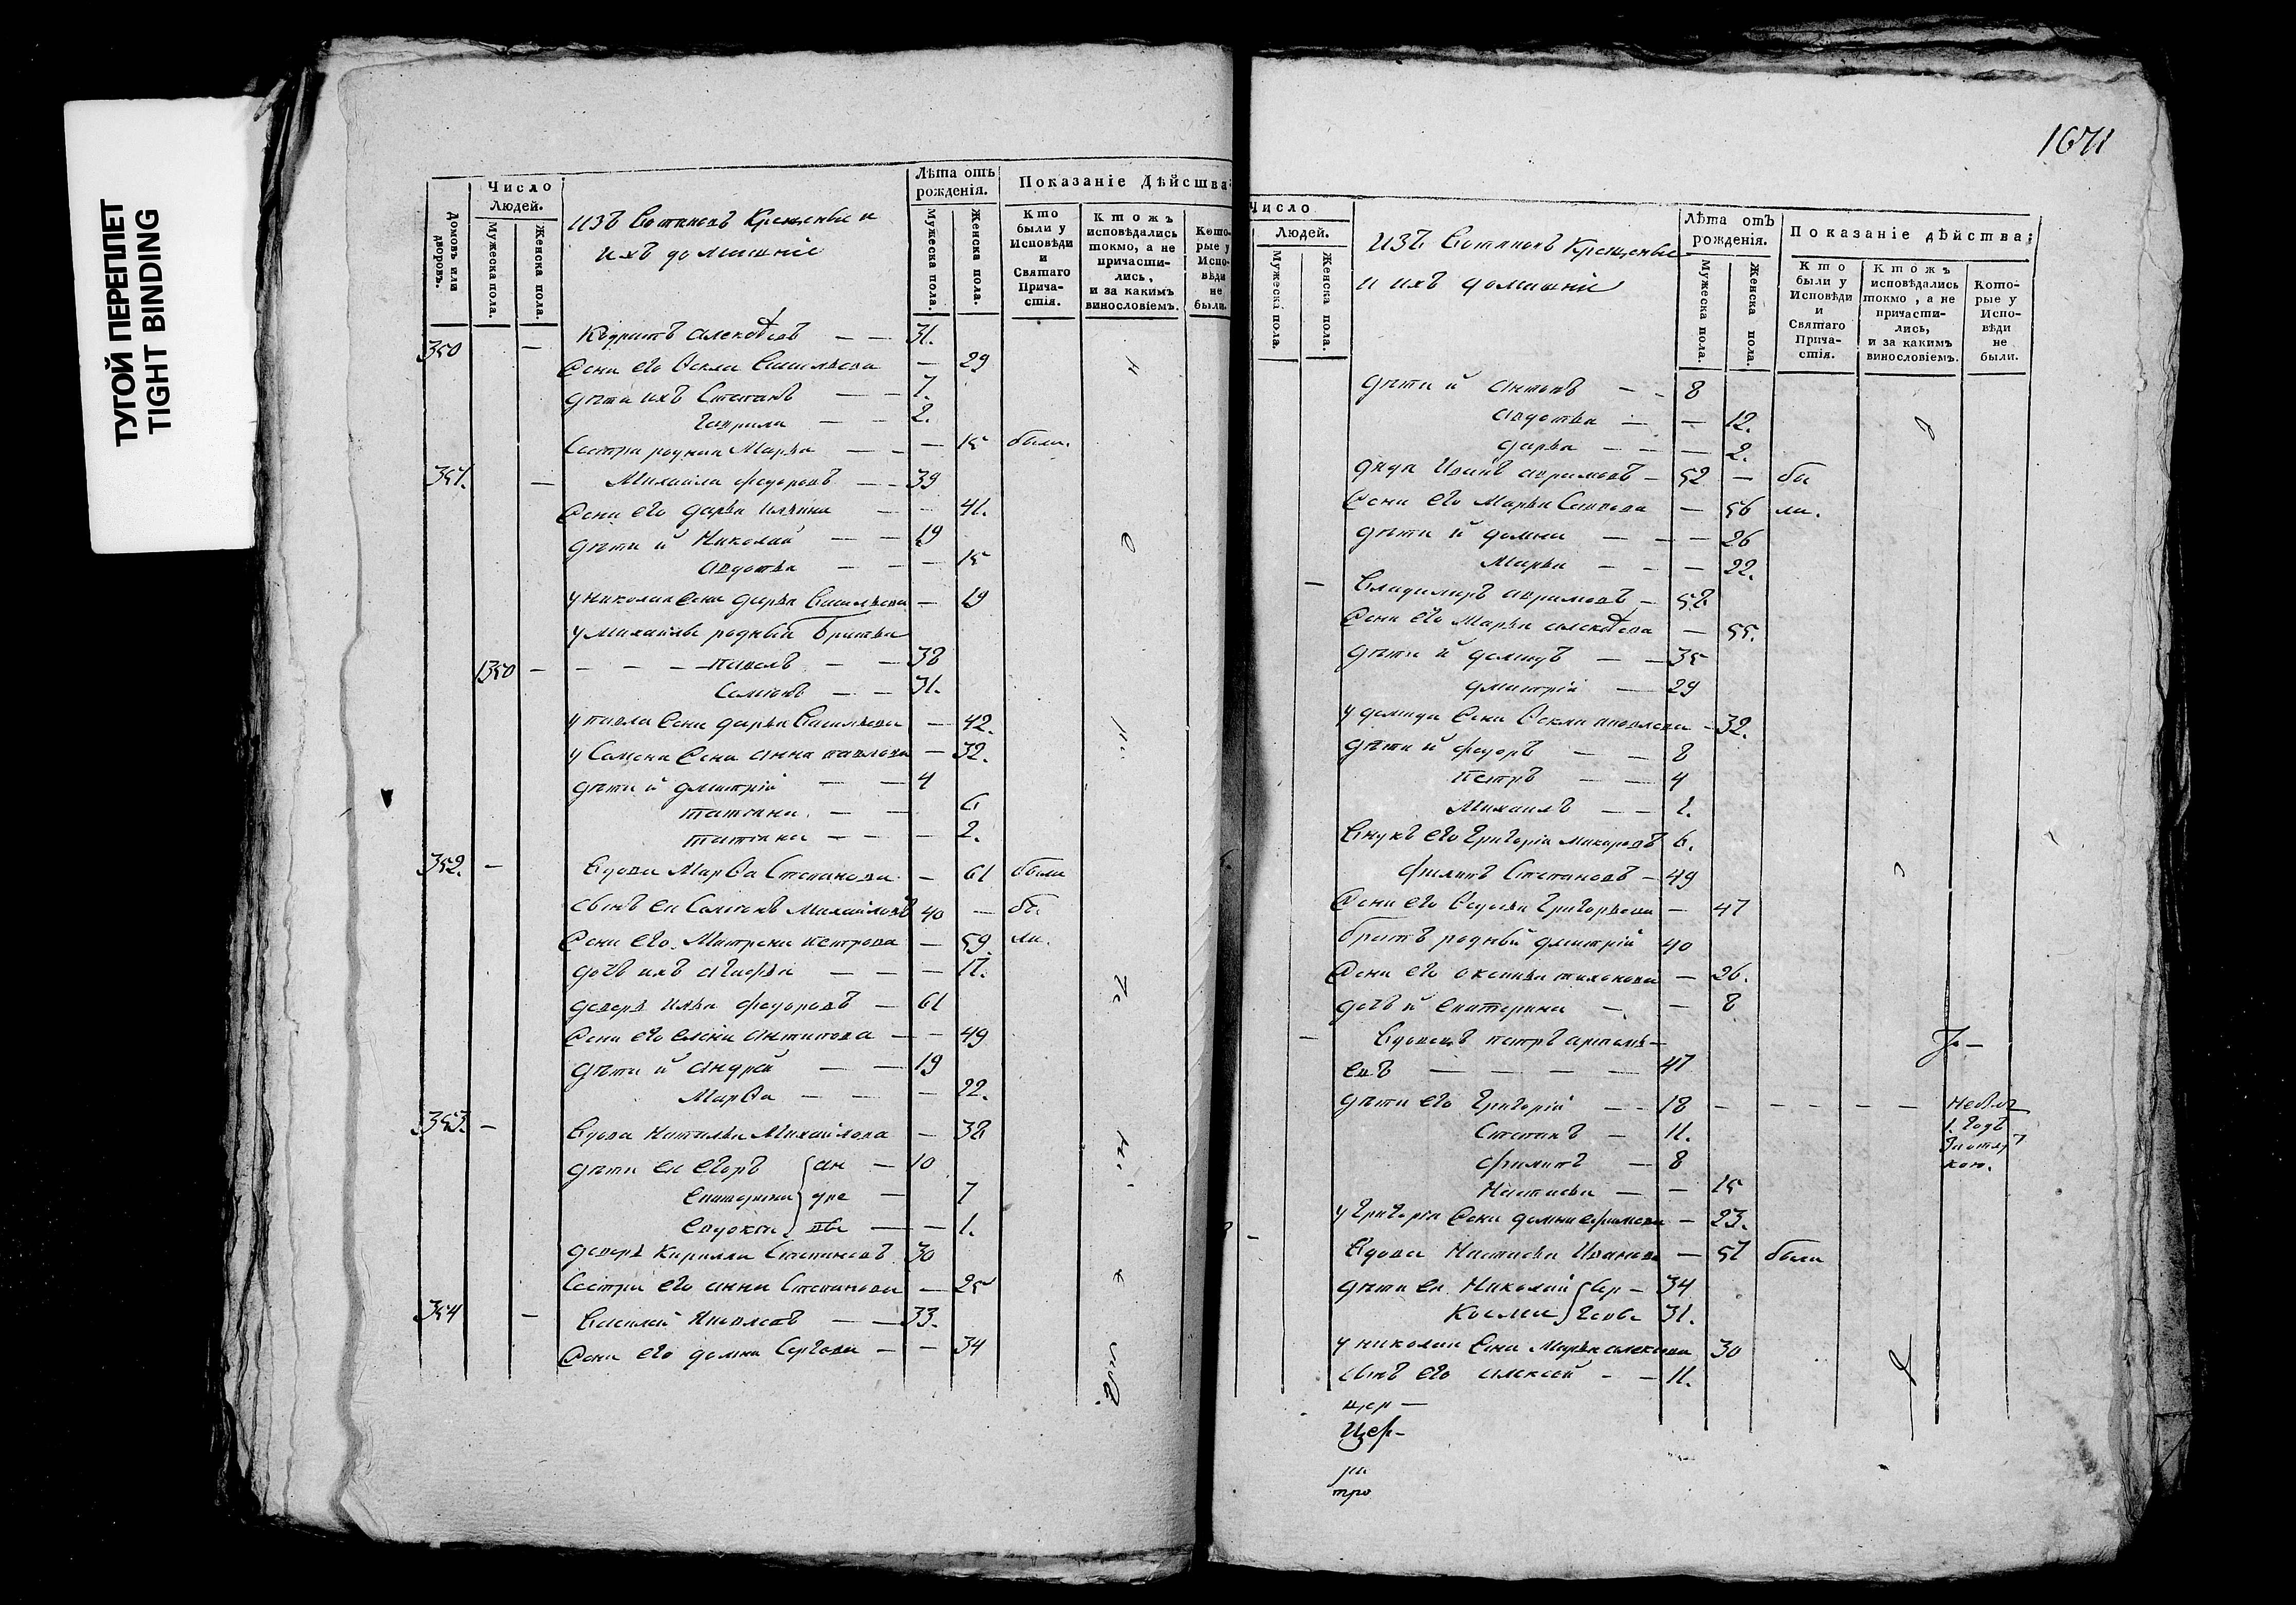 ТУГОЙ ПЕРЕПЛЕТ
TIGHT BINDING
Домовъ или дворовъ.
Число Людей.
Мужеска пола.
Женска пола.
изъ Вотяковъ Крещеные и
ихъ домашніе
Лѣта отъ рожденія.
Мужеска пола.
Женска пола.
Показаніе Дѣйства
Кто были у Исповѣди и Святаго Причастія.
Ктожъ исповѣдались токмо, а не причастились, и за какимъ винословіемъ.
Которые у Исповѣди не были.
350 — Алексѣевъ — — 31.
Жена его Фекла Васильева — 29
дѣти ихъ Степанъ — — 7.
Гаврила — — 2.
Сестра родная Марья — — — 15 были.
351. — Михайла Федоровъ — — 39
Жена его Дарья Ильина — — 41.
дѣти и Николай — — 19
Авдотья — — — 15
у Николая Жена Дарья Васильева — 19
у Михайлы родные братья
1350 — — — — Павелъ — — 38
Семенъ — — 31.
у Павла Жена Дарья Васильева — 42.
у Семена Жена Анна Павлова — 32.
дѣти и Дмитрій — — 4
Татьяна — — 6
Татьяна — — — 2.
352. — Вдова Марѳа Степанова — 61 были
сынъ ея Семенъ Михайловъ 40 — бы
Жена его Матрена Петрова — 59. ли.
дочь ихъ Агафья — — — 17.
деверь Илья Федоровъ — 61
Жена его Елена Антипова — — 49
дѣти и Андрей — — 19
Марѳа — — — 22.
353. — Вдова Наталья Михайлова — 38
дѣти ея Егоръ ан — 10
Екатерина дре — 7
Евдокія вы — — 1.
деверь Кирилла Степановъ 30
Сестра его Анна Степанова — 25
354 — Василей — — 33.
Жена его Домна Сергѣева — — 34
1671
Число Людей.
Мужеска пола.
Женска пола.
изъ Вотяковъ Крещеные
и ихъ домашніе
Лѣта отъ рожденія.
Мужеска пола.
Женска пола.
Показаніе дѣйства:
Кто были у Исповѣди и Святаго Причастія.
Ктожъ исповѣдались токмо, а не причастились, и за какимъ винословіемъ.
Которые у Исповѣди не были.
дѣти и Антонъ — — 8
Авдотья — — 12.
Дарья — — — 2.
дядя Иванъ Аврамовъ — 52 — бы
Жена его Марья — 56 ли.
дѣти и Домна — — — 26
Марья — — — 22.
— Владимиръ Аврамовъ — 58
Жена его Марья Алексѣева — 55.
дѣти и Демидъ — — 35
Дмитрій — 29
у Демида Жена Фекла — 32.
дѣти и Федоръ — — 8
Петръ — — 4
Михаилъ — — 1.
Внукъ его Григорій Макаровъ 6.
Филипъ Степановъ — 49
Жена его Григорьева — 47
братъ родный Дмитрій 40
Жена его — 26.
дочь и Екатерина — — 8
— Вдовецъ Петръ Артемь—
евъ — — — — 47
дѣти его Григорій — — 18 — — — — —
Степанъ — 11.
Филипъ — 8
Настасья — — 15
у Григорья Жена Домна Ефимова — 23.
— Вдова Настасья Иванова — 57 были
дѣти ея Николай 34
Косма 31.
у Николая Жена Марья 30
сынъ его Алексей — — 11.
цер —
Цер—
тро